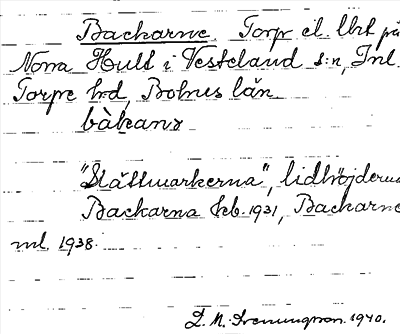 Backarne. Torp el. lht på
Norra Hult i Västerland s:n, Inl.
Torpe hd, Bohus län
bàkanɤ
"Slåttmarkerna", lidhöjderna
Backarna kb. 1931, Backarne
ml. 1938.
D. M. 1940.